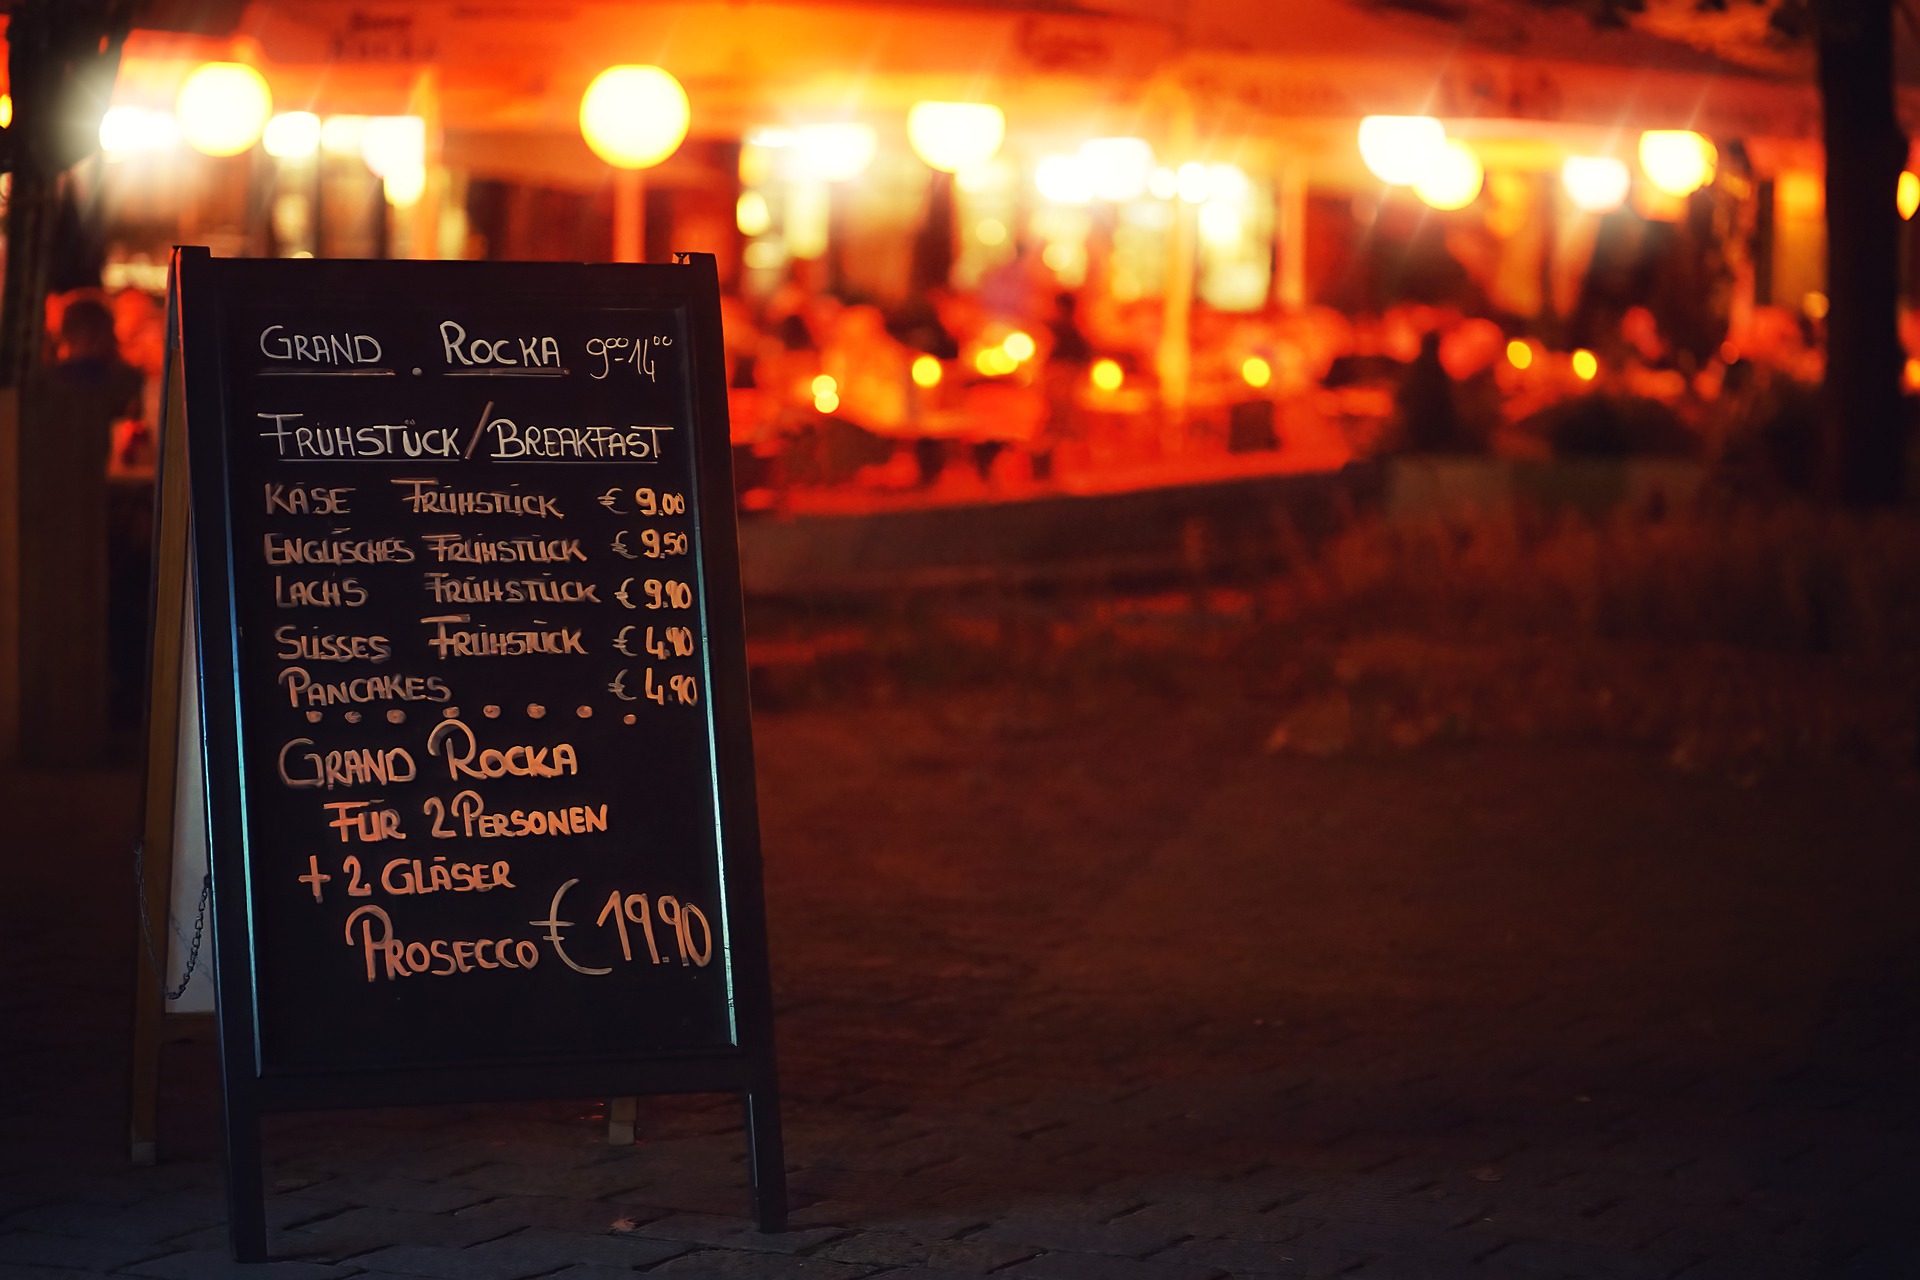 GRAND . ROCKA 9⁰⁰-14⁰⁰
FRÜHSTÜCK/BREAKFAST
KÄSE FRÜHSTÜCK € 9.00
ENGLISCHES FRÜHSTÜCK € 9.50
LACHS FRÜHSTÜCK € 9.90
SÜSSES FRÜHSTÜCK € 4.90
PANCAKES € 4.90
GRAND ROCKA
FÜR 2 PERSONEN
+ 2 GLÄSER
PROSECCO € 19.90